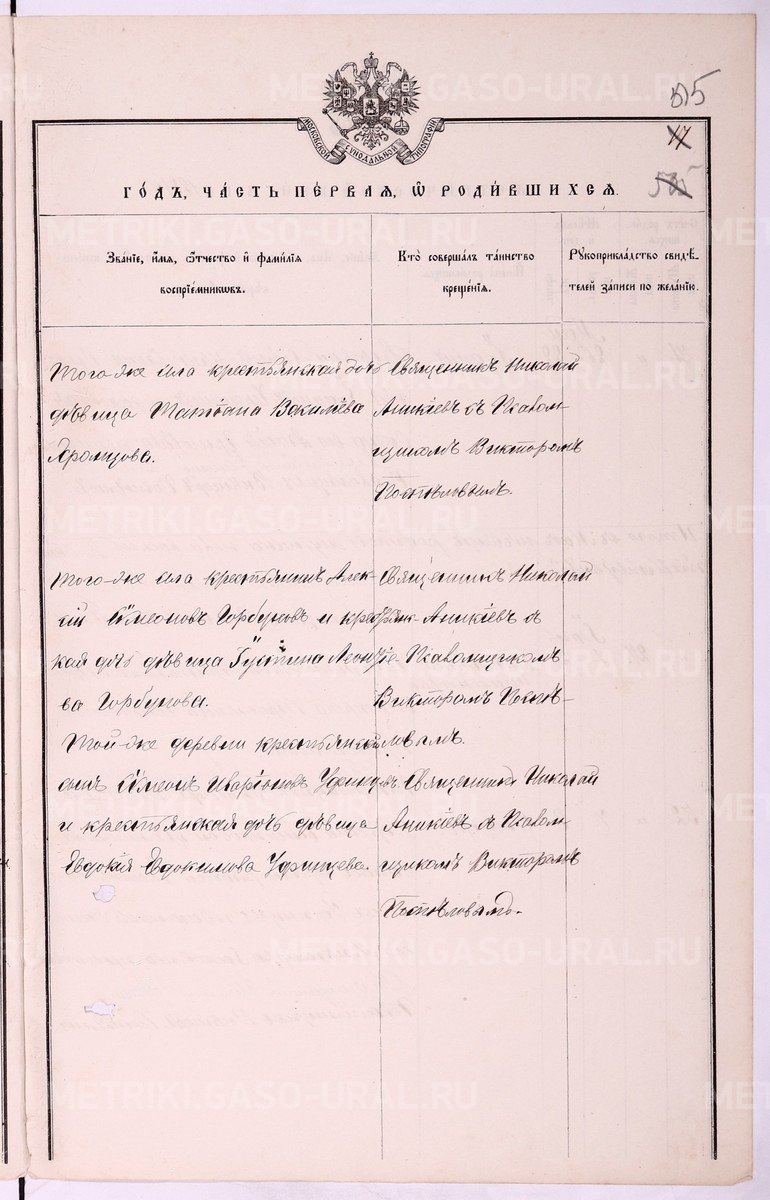 515
17
515
МОСКОВСКОЙ СѴНОДАЛЬНОЙ ТИПОГРАФІИ
ГО́ДЪ, ЧА́СТЬ ПЕ́РВАЯ, Ѿ РОДИ́ВШИХСЯ.
Зва́нїе, и҆́мѧ, ѻ҆́тчество и҆ фами́лїѧ
воспрїе́мникѡвъ.
Кто̀ совершалъ та́инство
креще́нїѧ.
Рꙋкоприкла́дство свидѣ́-
телей за́писи по жела́нїю.
Того-же села крестьянская дочь
дѣвица Татіана Василіева
Священникъ Николай
Аникіевъ съ Псалом-
щикомъ Викторомъ
Поспѣловымъ.
Того-же села крестьянинъ Алек-
сій Сѵмеоновъ Горбуновъ и крестьянс-
кая дочь дѣвица Іустина Леонтіе-
ва Горбунова.
Священникъ Николай
Аникіевъ съ
Псаломщикомъ
Викторомъ Поспѣ-
ловымъ.
Той-же деревни крестьянскій
сынъ Сѵмеонъ Иларіоновъ Уфинцевъ
и крестьянская дочь дѣвица
Евдокія Евдокимова Уфинцева.
Священникъ Николай
Аникіевъ съ Псалом-
щикомъ Викторомъ
Поспѣловымъ.
METRIKI.GASO-URAL.RU